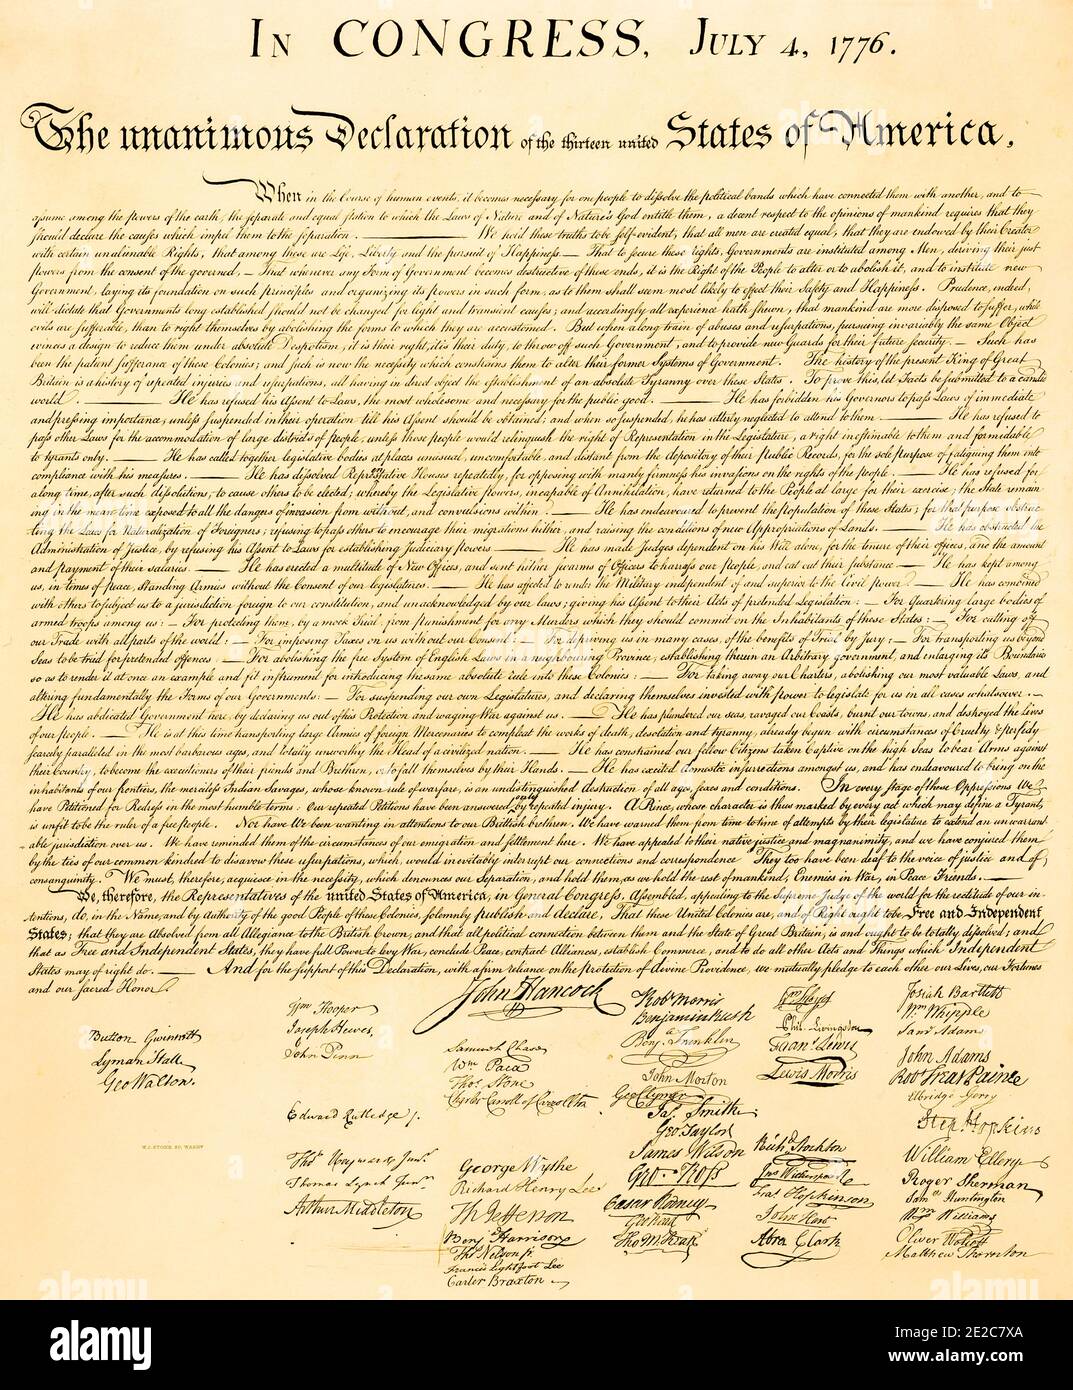 In CONGRESS, July 4, 1776.
The unanimous Declaration of the thirteen united States of America,
When in the Course of human events, it becomes necessary for one people to dissolve the political bands which have connected them with another, and to
assume among the powers of the earth, the separate and equal station to which the Laws of Nature and of Nature's God entitle them, a decent respect to the opinions of mankind requires that they
should declare the causes which impel them to the separation. — We hold these truths to be self-evident, that all men are created equal, that they are endowed by their Creator
with certain unalienable Rights, that among these are Life, Liberty and the pursuit of Happiness.— That to secure these rights, Governments are instituted among Men, deriving their just
powers from the consent of the governed, — That whenever any Form of Government becomes destructive of these ends, it is the Right of the People to alter or to abolish it, and to institute new
Government, laying its foundation on such principles and organizing its powers in such form, as to them shall seem most likely to effect their Safety and Happiness. Prudence, indeed,
will dictate that Governments long established should not be changed for light and transient causes; and accordingly all experience hath shewn, that mankind are more disposed to suffer, while
evils are sufferable, than to right themselves by abolishing the forms to which they are accustomed. But when a long train of abuses and usurpations, pursuing invariably the same Object
evinces a design to reduce them under absolute Despotism, it is their right, it is their duty, to throw off such Government, and to provide new Guards for their future security. — Such has
been the patient sufferance of these Colonies; and such is now the necessity which constrains them to alter their former Systems of Government. The history of the present King of Great
Britain is a history of repeated injuries and usurpations, all having in direct object the establishment of an absolute Tyranny over these States. To prove this, let Facts be submitted to a candid
world. — He has refused his Assent to Laws, the most wholesome and necessary for the public good. — He has forbidden his Governors to pass Laws of immediate
and pressing importance, unless suspended in their operation till his Assent should be obtained; and when so suspended, he has utterly neglected to attend to them. — He has refused to
pass other Laws for the accommodation of large districts of people, unless those people would relinquish the right of Representation in the Legislature, a right inestimable to them and formidable
to tyrants only. — He has called together legislative bodies at places unusual, uncomfortable, and distant from the depository of their Public Records, for the sole purpose of fatiguing them into
compliance with his measures. — He has dissolved Representative Houses repeatedly, for opposing with manly firmness his invasions on the rights of the people. — He has refused for
a long time, after such dissolutions, to cause others to be elected; whereby the Legislative powers, incapable of Annihilation, have returned to the People at large for their exercise; the State remain
ing in the mean time exposed to all the dangers of invasion from without, and convulsions within. — He has endeavoured to prevent the population of these States; for that purpose obstruc
ting the Laws for Naturalization of Foreigners; refusing to pass others to encourage their migrations hither, and raising the conditions of new Appropriations of Lands. — He has obstructed the
Administration of Justice, by refusing his Assent to Laws for establishing Judiciary powers. — He has made Judges dependent on his Will alone, for the tenure of their offices, and the amount
and payment of their salaries. — He has erected a multitude of New Offices, and sent hither swarms of Officers to harrass our people, and eat out their substance. — He has kept among
us, in times of peace, Standing Armies without the Consent of our legislatures. — He has affected to render the Military independent of and superior to the Civil power. — He has combined
with others to subject us to a jurisdiction foreign to our constitution, and unacknowledged by our laws; giving his Assent to their Acts of pretended Legislation: — For Quartering large bodies of
armed troops among us: — For protecting them, by a mock Trial, from punishment for any Murders which they should commit on the Inhabitants of these States: — For cutting off
our Trade with all parts of the world: — For imposing Taxes on us without our Consent: — For depriving us in many cases, of the benefits of Trial by Jury: — For transporting us beyond
Seas to be tried for pretended offences. — For abolishing the free System of English Laws in a neighbouring Province, establishing therein an Arbitrary government, and enlarging its Boundaries
so as to render it at once an example and fit instrument for introducing the same absolute rule into these Colonies: — For taking away our Charters, abolishing our most valuable Laws, and
altering fundamentally the Forms of our Governments: — For suspending our own Legislatures, and declaring themselves invested with power to legislate for us in all cases whatsoever. —
He has abdicated Government here, by declaring us out of his Protection and waging War against us. — He has plundered our seas, ravaged our Coasts, burnt our towns, and destroyed the lives
of our people. — He is at this time transporting large Armies of foreign Mercenaries to compleat the works of death, desolation and tyranny, already begun with circumstances of Cruelty & perfidy
scarcely paralleled in the most barbarous ages, and totally unworthy the Head of a civilized nation. — He has constrained our fellow Citizens taken Captive on the high Seas to bear Arms against
their Country, to become the executioners of their friends and Brethren, or to fall themselves by their Hands. — He has excited domestic insurrections amongst us, and has endeavoured to bring on the
inhabitants of our frontiers, the merciless Indian Savages, whose known rule of warfare, is an undistinguished destruction of all ages, sexes and conditions. In every stage of these Oppressions We
have Petitioned for Redress in the most humble terms: Our repeated Petitions have been answered only by repeated injury. A Prince, whose character is thus marked by every act which may define a Tyrant,
is unfit to be the ruler of a free people. Nor have We been wanting in attentions to our Brittish brethren. We have warned them from time to time of attempts by their legislature to extend an unwarrant
able jurisdiction over us. We have reminded them of the circumstances of our emigration and settlement here. We have appealed to their native justice and magnanimity, and we have conjured them
by the ties of our common kindred to disavow these usurpations, which, would inevitably interrupt our connections and correspondence. They too have been deaf to the voice of justice and of
consanguinity. We must, therefore, acquiesce in the necessity, which denounces our Separation, and hold them, as we hold the rest of mankind, Enemies in War, in Peace Friends. —
We, therefore, the Representatives of the united States of America, in General Congress, Assembled, appealing to the Supreme Judge of the world for the rectitude of our in-
tentions, do, in the Name, and by Authority of the good People of these Colonies, solemnly publish and declare, That these United Colonies are, and of Right ought to be Free and Independent
States; that they are Absolved from all Allegiance to the British Crown, and that all political connection between them and the State of Great Britain, is and ought to be totally dissolved; and
that as Free and Independent States, they have full Power to levy War, conclude Peace, contract Alliances, establish Commerce, and to do all other Acts and Things which Independent
States may of right do. — And for the support of this Declaration, with a firm reliance on the protection of divine Providence, we mutually pledge to each other our Lives, our Fortunes
and our sacred Honor.
Button Gwinnett
Lyman Hall
Geo Walton.
Wm Hooper
Joseph Hewes,
John Penn
Edward Rutledge /.
Thos Heyward Junr.
Thomas Lynch Junr.
Arthur Middleton
John Hancock
Samuel Chase
Wm Paca
Thos Stone
Charles Carroll of Carrollton
George Wythe
Richard Henry Lee
Th Jefferson
Benj Harrison
Thos Nelson jr.
Francis Lightfoot Lee
Carter Braxton
Robt Morris
Benjamin Rush
Benj Franklin
John Morton
Geo Clymer
Jas Smith
Geo Taylor
James Wilson
Geo Ross
Caesar Rodney
Geo Read
Tho M:Kean
Wm Floyd
Phil. Livingston
Frans Lewis
Lewis Morris
Richd Stockton
Jno Witherspoon
Fras Hopkinson
John Hart
Abra Clark
Josiah Bartlett
Wm Whipple
Saml Adams
John Adams
Robt Treat Paine
Elbridge Gerry
Step. Hopkins
William Ellery
Roger Sherman
Samel Huntington
Wm Williams
Oliver Wolcott
Matthew Thornton
W. J. STONE SC. WASHN
alamy
alamy
Image ID: 2E2C7XA
www.alamy.com